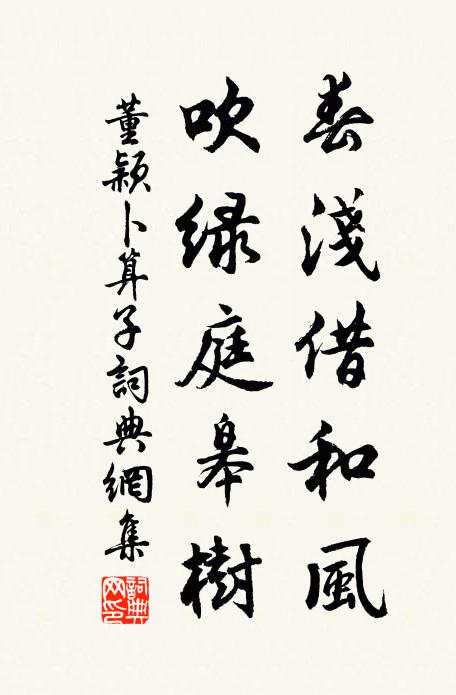 春淺借和風
吹綠庭皋樹
董穎卜算子詞典網集
詞典網印